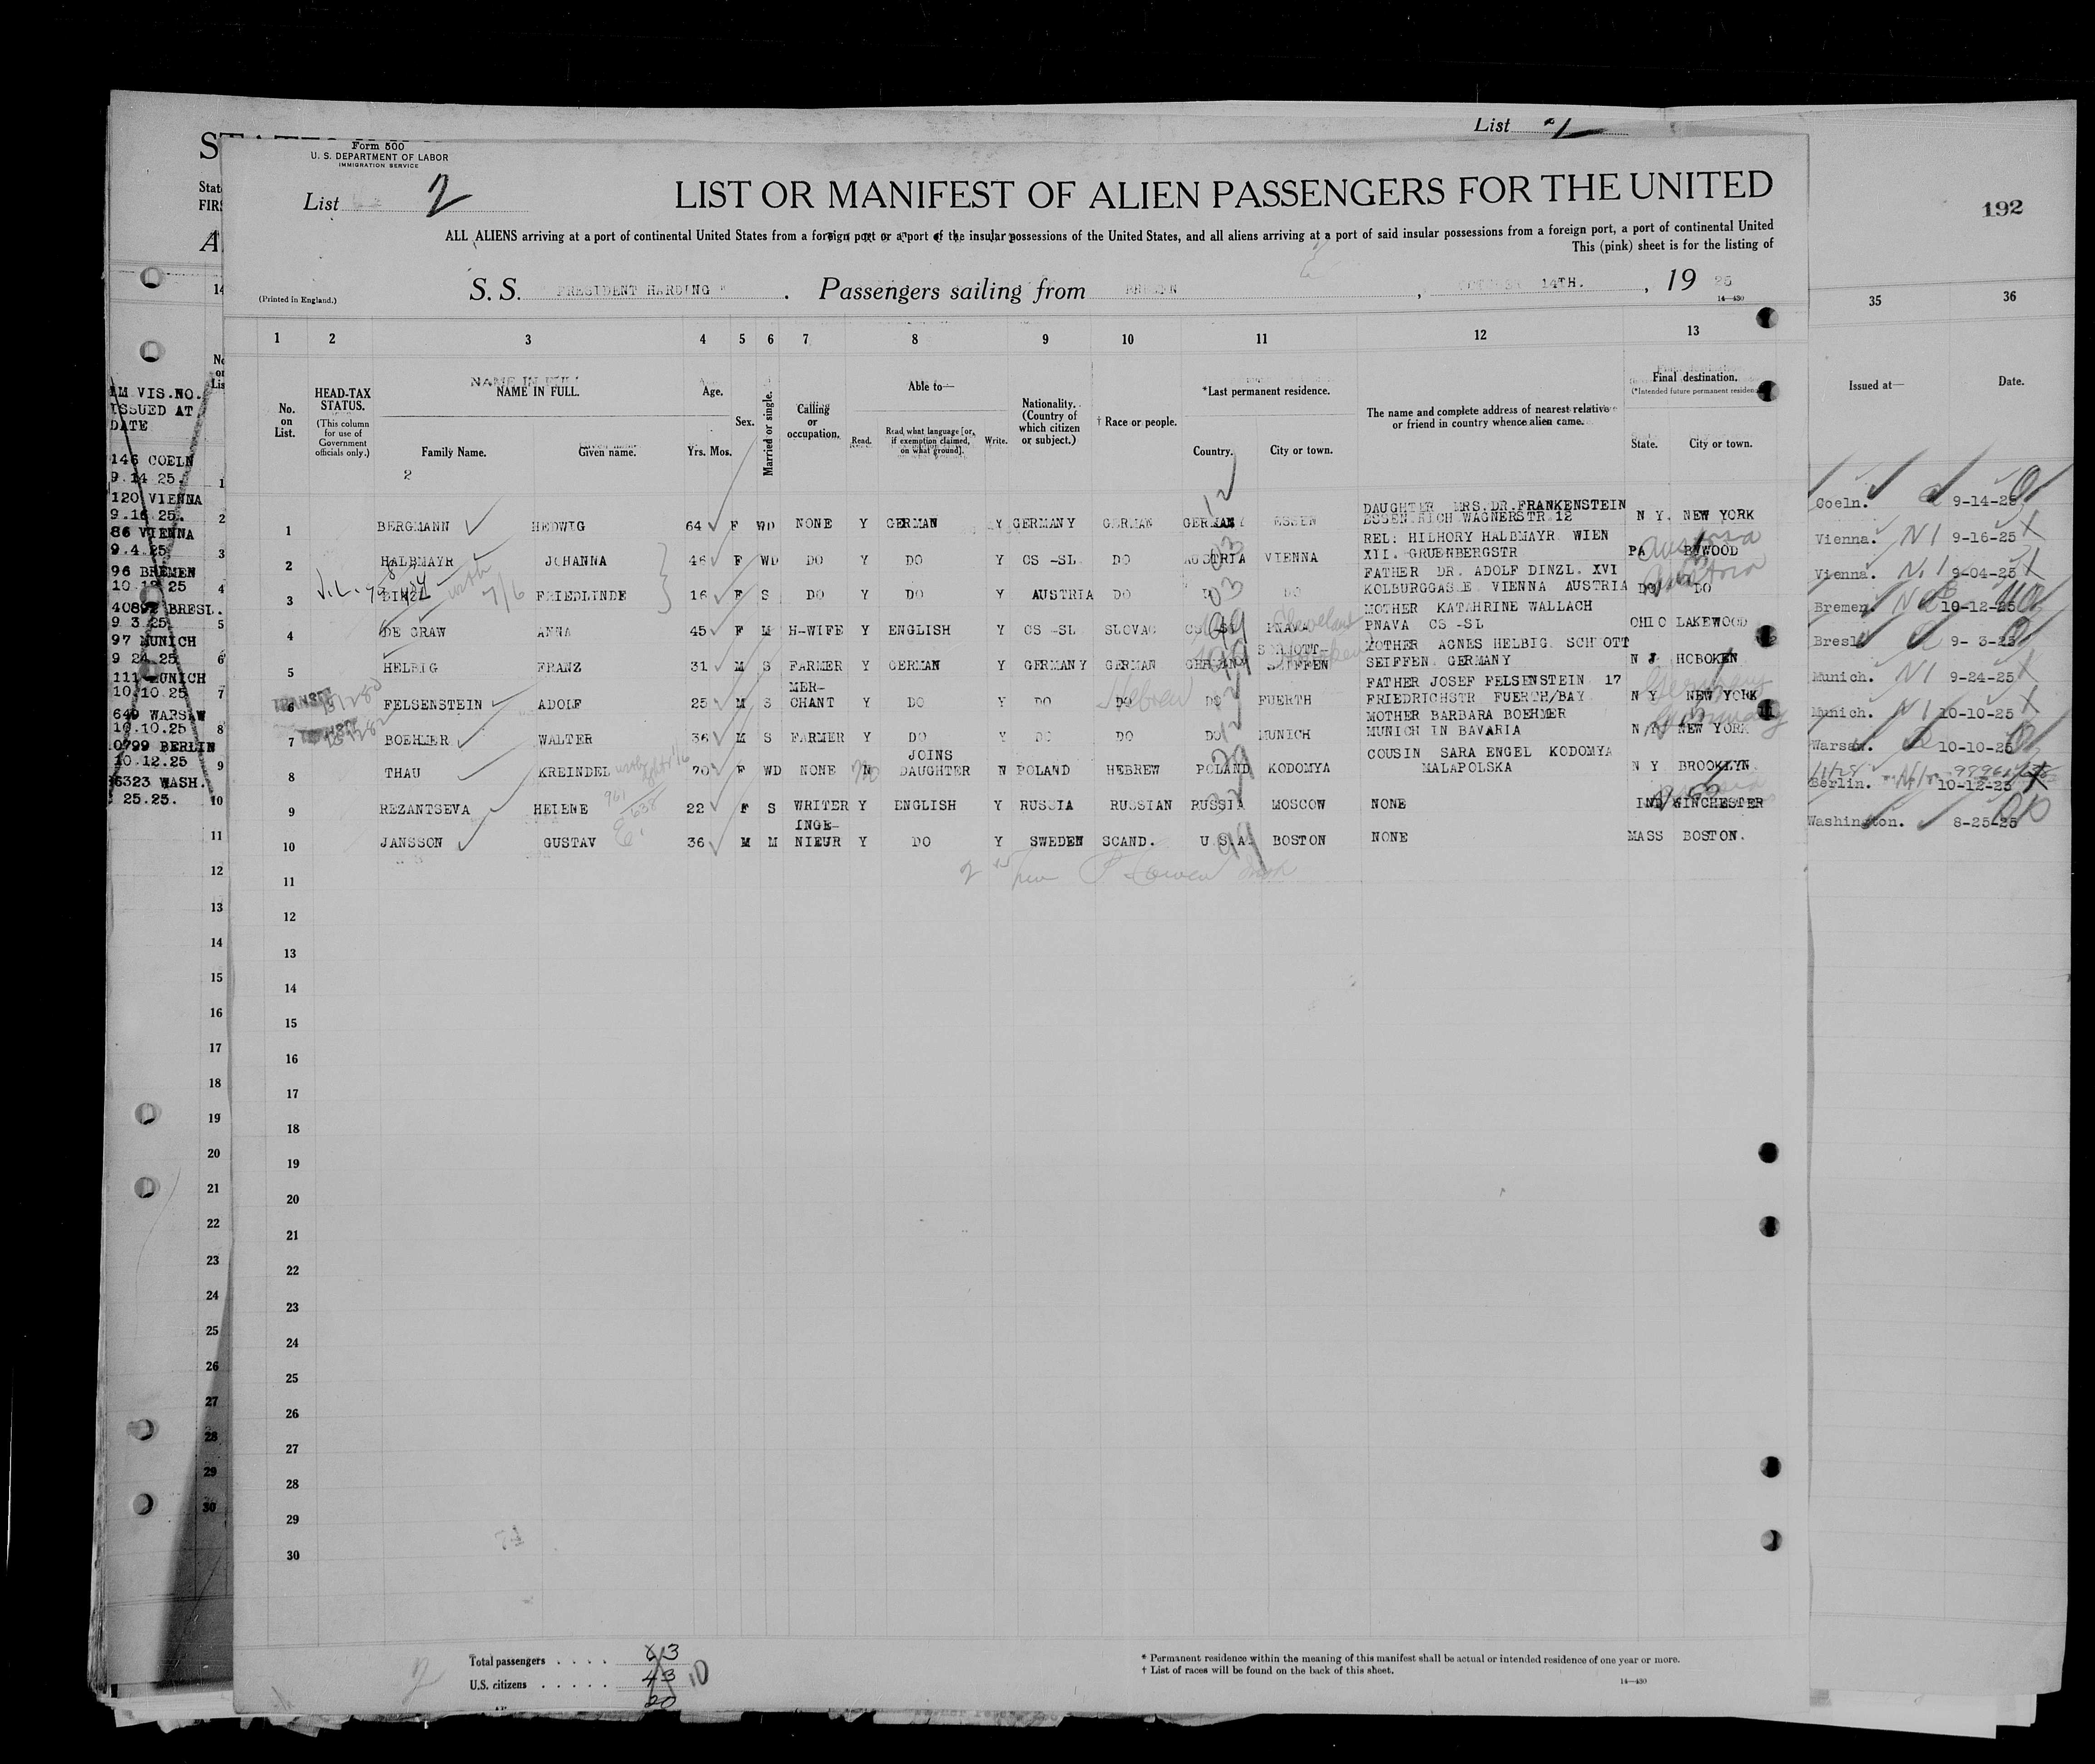 List 2
Form 500
U. S. DEPARTMENT OF LABOR
IMMIGRATION SERVICE
List 2
LIST OR MANIFEST OF ALIEN PASSENGERS FOR THE UNITED
192
ALL ALIENS arriving at a port of continental United States from a foreign port or a port of the insular possessions of the United States, and all aliens arriving at a port of said insular possessions from a foreign port, a port of continental United
This (pink) sheet is for the listing of
(Printed in England.)
S. S. PRESIDENT HARDING . Passengers sailing from BREMEN , OCTOBER 14TH. , 19 25
14—430
1 2 3 4 5 6 7 8 9 10 11 12 13 35 36
No. on List.
HEAD-TAX STATUS.
(This column for use of Government officials only.)
NAME IN FULL.
Family Name. Given name.
Age.
Yrs. Mos.
Sex.
Married or single.
Calling or occupation.
Able to—
Read. Read, what language [or, if exemption claimed, on what ground]. Write.
Nationality. (Country of which citizen or subject.)
† Race or people.
*Last permanent residence.
Country. City or town.
The name and complete address of nearest relative or friend in country whence alien came.
Final destination.
(*Intended future permanent residence.)
State. City or town.
Issued at— Date.
IM VIS.NO.
ISSUED AT
DATE
146 COELN
9.14 25.
120 VIENNA
9.16 25.
86 VIENNA
9.4.25
96 BREMEN
10.12 25
40892 BRESL.
9 3.25
97 MUNICH
9 24.25
111 MUNICH
10.10 25
649 WARSAW
10.10.25
0799 BERLIN
10.12.25
6323 WASH.
25.25.
2
1 BERGMANN HEDWIG 64 F WD NONE Y GERMAN Y GERMANY GERMAN GERMANY ESSEN DAUGHTER MRS.DR.FRANKENSTEIN ESSEN RICH WAGNERSTR 12 N Y. NEW YORK Coeln. 9-14-25
2 HALBMAYR JOHANNA 46 F WD DO Y DO Y CS -SL DO AUSTRIA VIENNA REL: HILHORY HALBMAYR WIEN XII. GRUENBERGSTR PA Vienna. N1 9-16-25
3 DINZL FRIEDLINDE 16 F S DO Y DO Y AUSTRIA DO DO DO FATHER DR. ADOLF DINZL. XVI KOLBURGGASSE VIENNA AUSTRIA DO DO Vienna. N.1 9-04-25
4 DE GRAW ANNA 45 F M H-WIFE Y ENGLISH Y CS -SL SLOVAC CS -SL PNAVA MOTHER KATAHRINE WALLACH PNAVA CS -SL OHIO LAKEWOOD Bremen. 10-12-25
5 HELBIG FRANZ 31 M S FARMER Y GERMAN Y GERMANY GERMAN GERMANY SCHOTT- SEIFFEN MOTHER AGNES HELBIG. SCHOTT SEIFFEN. GERMANY N J HOBOKEN Bresl 9- 3-25
6 FELSENSTEIN ADOLF 25 M S MER- CHANT Y DO Y DO DO Hebrew DO FUERTH FATHER JOSEF FELSENSTEIN 17 FRIEDRICHSTR FUERTH/BAY N Y NEW YORK Munich. N1 9-24-25
7 BOEHMER WALTER 36 M S FARMER Y DO Y DO DO DO MUNICH MOTHER BARBARA BOEHMER MUNICH IN BAVARIA N Y NEW YORK Munich. N1 10-10-25
8 THAU KREINDEL 70 F WD NONE N JOINS DAUGHTER N POLAND HEBREW POLAND KODOMYA COUSIN SARA ENGEL KODOMYA MALAPOLSKA N Y BROOKLYN. Warsaw. 10-10-25
9 REZANTSEVA HELENE 22 F S WRITER Y ENGLISH Y RUSSIA RUSSIAN RUSSIA MOSCOW NONE IND WINCHESTER Berlin. 10-12-25
10 JANSSON GUSTAV 36 M M INGE- NIEUR Y DO Y SWEDEN SCAND. U.S.A. BOSTON NONE MASS BOSTON. Washington. 8-25-25
11
12
13
14
15
16
17
18
19
20
21
22
23
24
25
26
27
28
29
30
Total passengers . . . . 63
U.S. citizens . . . . . 43 10
20
* Permanent residence within the meaning of this manifest shall be actual or intended residence of one year or more.
† List of races will be found on the back of this sheet.
14—430